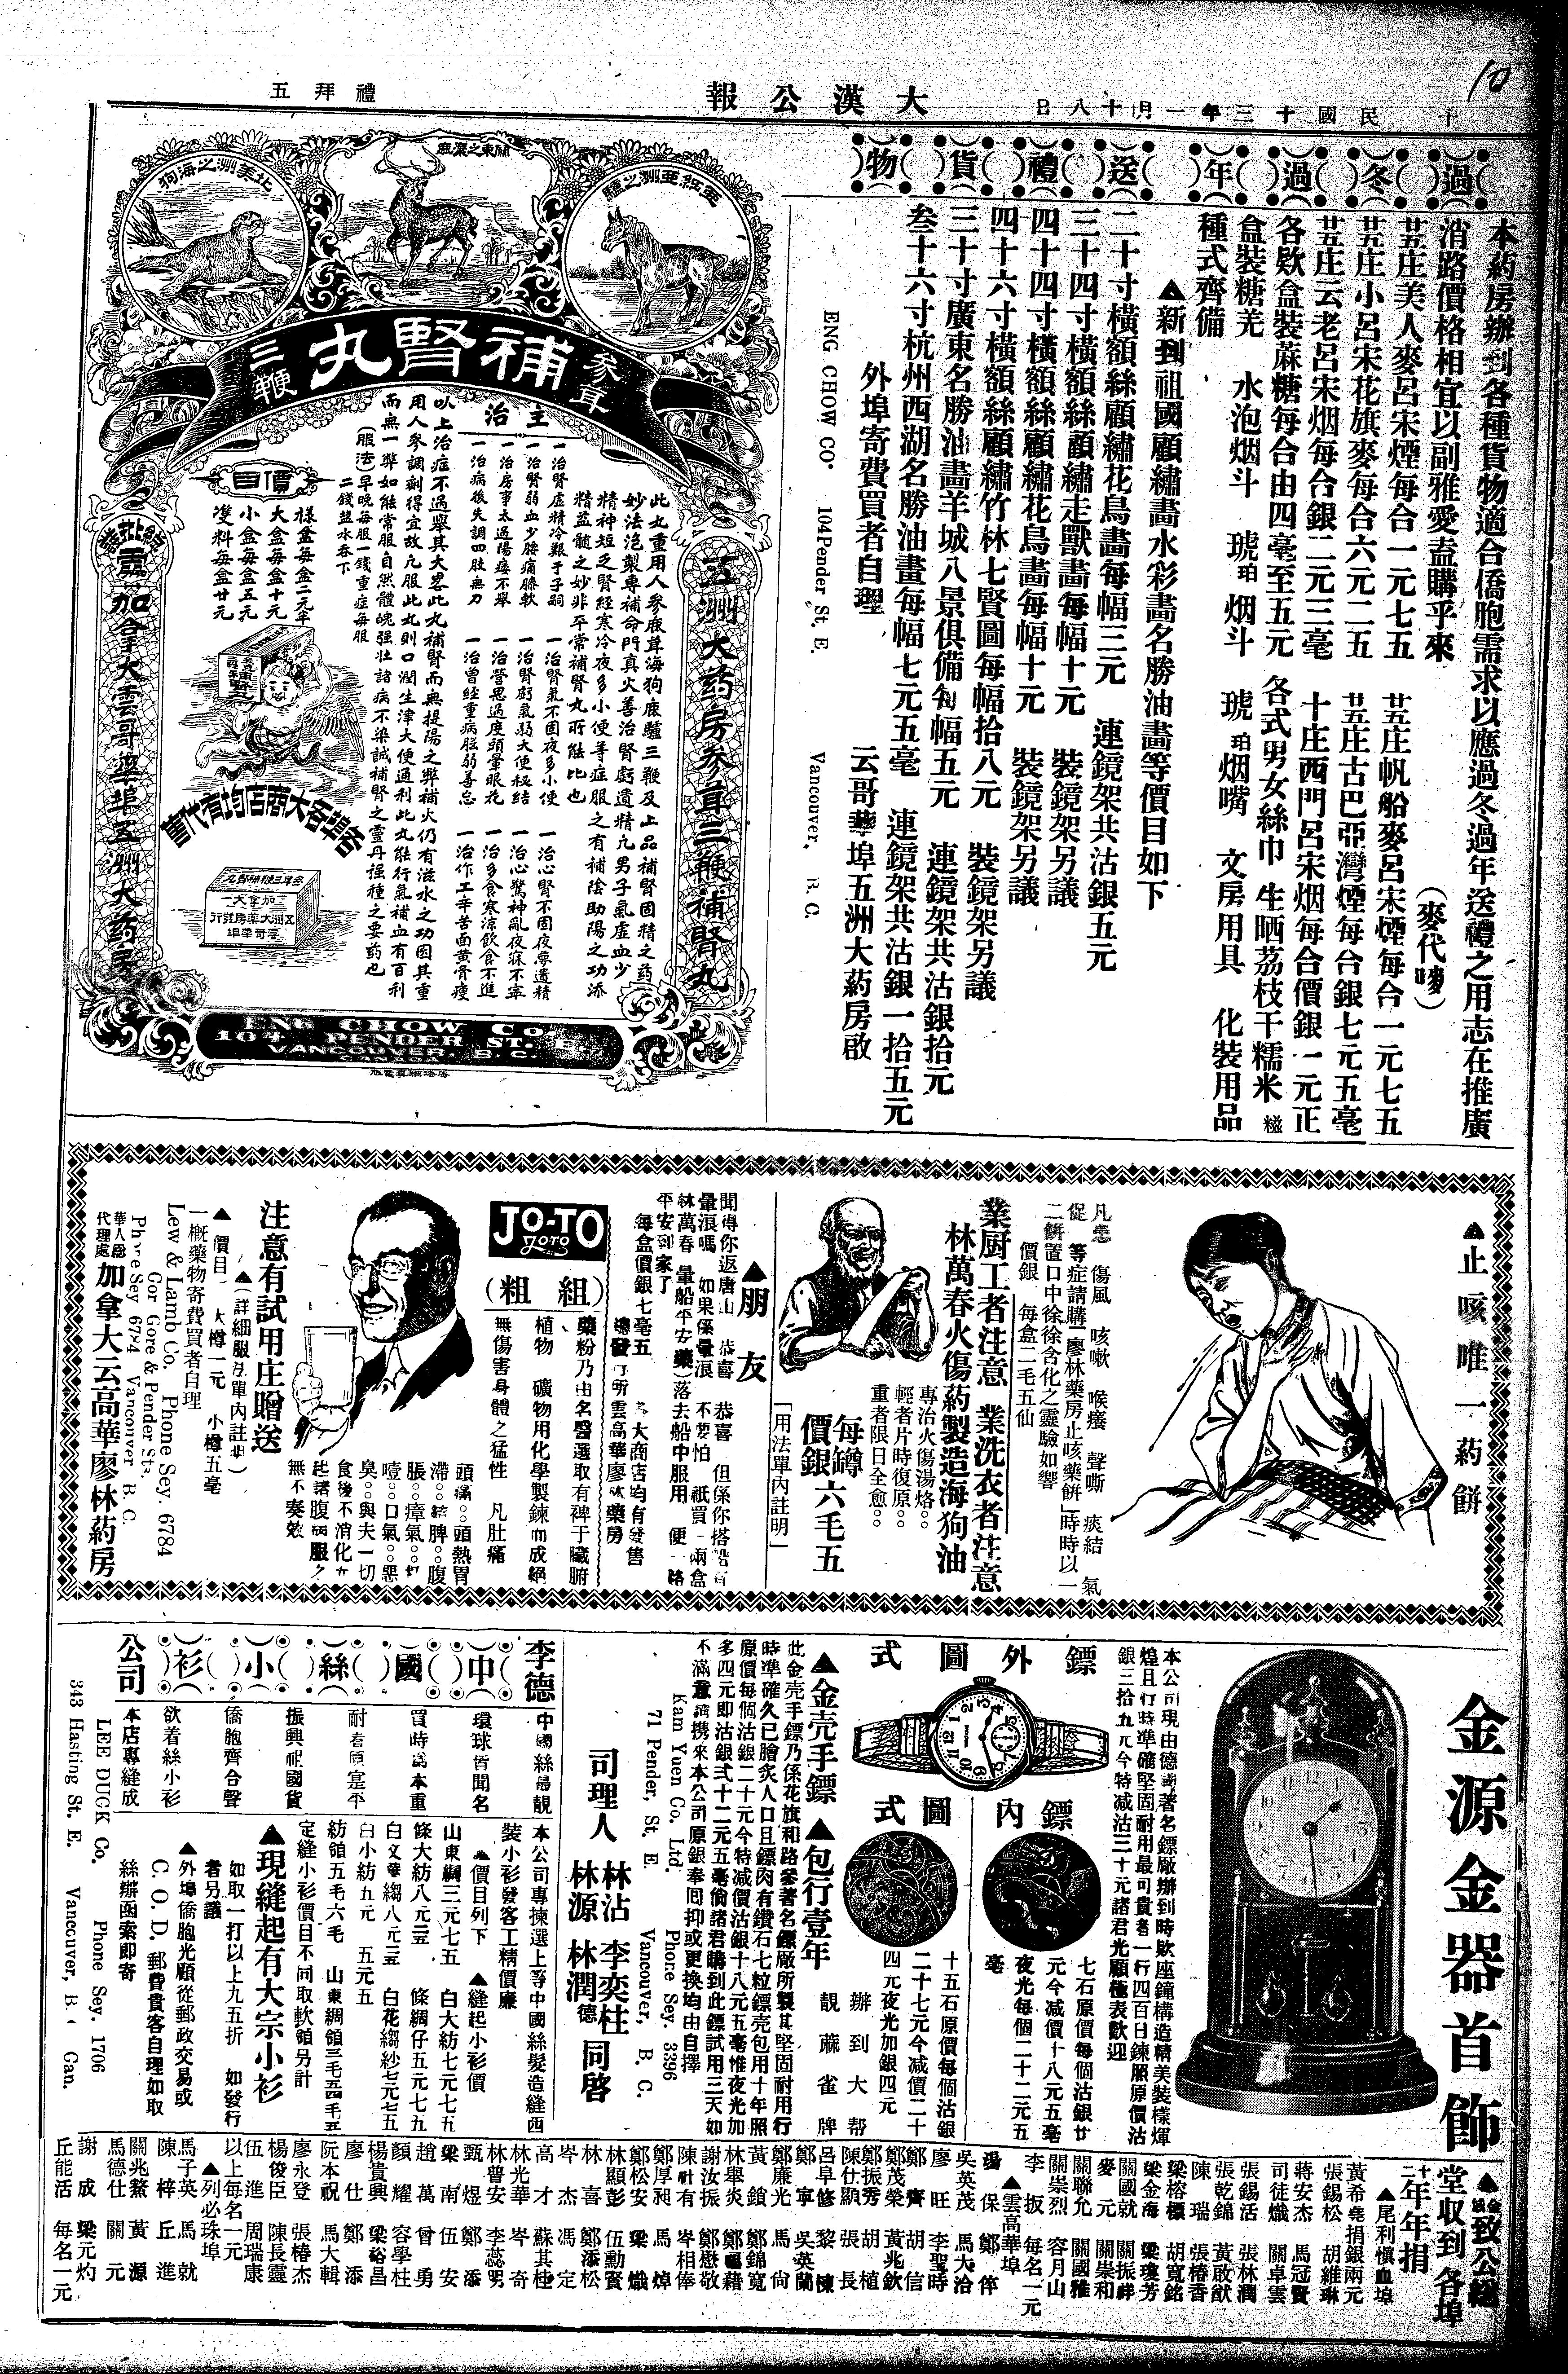 10
十
民國十三年一月十八日
大漢公報
禮拜五
過冬過年送禮貨物
本葯房辦到各種貨物適合僑胞需求以應過冬過年送禮之用志在推廣
消路價格相宜以副雅愛盍購乎來
（麥代嘜）
廿五庄美人麥呂宋煙每合一元七五
廿五庄帆船麥呂宋煙每合一元七五
廿五庄小呂宋花旗麥每合六元二五
廿五庄古巴亞灣煙每合銀七元五毫
廿五庄云老呂宋烟每合銀二元三毫
十庄西門呂宋烟每合價銀一元正
各欵盒裝蔴糖每合由四毫至五元
各式男女絲巾 生晒荔枝干糯米糍
盒裝糖羌 水泡烟斗 琥珀烟斗 琥珀烟嘴 文房用具 化裝用品
種式齊備
▲新到祖國顧繡畫水彩畫名勝油畫等價目如下
二十寸橫額絲顧繡花鳥畫每幅三元 連鏡架共沽銀五元
三十四寸橫額絲顧繡走獸畫每幅十元 裝鏡架另議
四十四寸橫額絲顧繡花鳥畫每幅十元 裝鏡架另議
四十六寸橫額絲顧繡竹林七賢圖每幅拾八元 裝鏡架另議
三十寸廣東名勝油畫羊城八景俱備每幅五元 連鏡架共沽銀拾元
叁十六寸杭州西湖名勝油畫每幅七元五毫 連鏡架共沽銀一拾五元
外埠寄費買者自理
云哥華埠五洲大葯房啟
ENG CHOW CO. 104 Pender St. E. Vancouver, B. C.
亞紅亞洲之驢
關東之梁鹿
北美洲之海狗
參茸三鞭補腎丸
五洲大药房參茸三鞭補腎丸
此丸重用人參鹿茸海狗鹿驢三鞭及上品補腎固精之药
妙法泡製專補命門真火善治腎虧遺精凡男子氣虛血少
精神短乏腎經寒冷夜多小便等症服之有補陰助陽之功添
精益髓之妙非平常補腎丸所能比也
主治
一治腎虛精冷艱于子嗣
一治腎氣不固夜多小便
一治心腎不固夜夢遺精
一治腎弱血少腰痛膝軟
一治腎虧氣弱大便秘結
一治心驚神亂夜寐不寧
一治房事太過陽痿不舉
一治營思過度頭暈眼花
一治多食寒涼飲食不進
一治病後失調四肢無力
一治曾經重病腦弱善忘
一治作工辛苦面黃骨瘦
以上治症不過舉其大畧此丸補腎而無提陽之弊補火仍有滋水之功因其重
用人參調劑得宜故凡服此丸則口潤生津大便通利此丸能行氣補血有百利
而無一弊如能常服自然體魄强壯諸病不染誠補腎之靈丹强種之要药也
（服法）早晚每服一錢重症每服
二錢盐水吞下
價目
樣盒每盒二元半
大盒每盒十元
小盒每盒五元
雙料每盒廿元
各埠各大商店均有代售
參茸三鞭補腎丸
加拿大
五洲大藥房發行
雲哥華埠
加拿大雲哥華埠五洲大药房
ENG CHOW Co.
104, PENDER ST. E.
VANCOUVER. B. C.
CANADA
▲止咳唯一葯餅
凡患 傷風 咳嗽 喉癢 聲嘶 痰結 氣
促 等症請購「廖林藥房止咳藥餅」時時以一
二餅置口中徐徐含化之靈驗如響
價銀 每盒二毛五仙
業厨工者注意 業洗衣者注意
林萬春火傷葯製造海狗油
專治火傷湯烙
輕者片時復原
重者限日全愈
每罇價銀六毛五
「用法單內註明」
▲朋友
聞得你返唐山 恭喜 恭喜 但係你搭船有
暈浪嗎 如果係暈浪 不要怕 祇買一兩盒
林萬春 暈船平安藥）落去船中服用 便一路
平安到家了
每盒價銀七毫五
各大商店均有發售
總發行所雲高華廖林藥房
JO-TO
JOTO
（組粗）
藥粉乃由名醫選取有裨于臟腑
植物 礦物用化學製鍊而成絕
無傷害身體之猛性 凡肚痛
頭痛 頭熱胃
滯 脾 腹
脹 瘴氣
噎 口氣 惡
臭 與夫一切
食後不消化
起諸腹病服之
無不奏效
注意有試用庄贈送
▲（詳細服法單內註明）
▲價目 大樽一元 小樽五毫
一概藥物寄費買者自理
Lew & Lamb Co. Phone Sey. 6784
Cor Gore & Pender Sts.
Phone Sey 6784 Vancouver B. C.
華人總代理處 加拿大云高華廖林葯房
金源金器首飾
本公司現由德國著名鏢廠辦到時欵座鐘構造精美裝樣煇
煌且行時準確堅固耐用最可貴者一行四百日鍊照原價沽
銀三拾九元今特减沽三十元諸君光顧極表歡迎
鏢外圖式
鏢內圖式
七石原價每個沽銀廿
元今减價十八元五毫
夜光每個二十二元五
毫
十五石原價每個沽銀
二十七元今减價二十
四元夜光加銀四元
辦到大帮
靚蔴雀牌
▲金壳手鏢 ▲包行壹年
此金壳手鏢乃係花旗和路參著名鏢廠所製其堅固耐用行
時準確久已膾炙人口且鏢肉有鑽石七粒鏢壳包用十年照
原價每個沽銀二十元今特减價沽銀十八元五毫惟夜光加
多四元即沽銀弍十二元五毫倘諸君購到此鏢試用三天如
不滿意請携來本公司原銀奉回抑或更換均由自擇
Kam Yuen Co. Ltd. Phone Sey. 3396
71 Pender, St. E. Vancouver, B. C.
司理人 林沾 李奕柱 林源 林潤德 同啓
李德中國絲小衫公司
中國絲最靚
環球皆聞名
買時為本重
耐着原寔平
振興祖國貨
僑胞齊合聲
欲着絲小衫
本店專縫成
本公司專揀選上等中國絲髮造縫西
裝小衫發客工精價廉
▲價目列下 ▲縫起小衫價
山東綢三元七五 白大紡七元七五
條大紡八元三五 條綢仔五元七五
白文華縐八元三五 白花縐紗七元七五
白小紡九元 五元五
紡領五毛六毛 山東綢領三毛五四毛五
定縫小衫價目不同取軟領另計
▲現縫起有大宗小衫
如取一打以上九五折 如發行
者另議
▲外埠僑胞光顧從郵政交易或
C. O. D. 郵費貴客自理如取
絲辦函索即寄
LEE DUCK Co. Phone Sey. 1706
343 Hasting St. E. Vancouver, B. C Can.
致公總
堂收到各埠
十二年年捐
▲尾利慎血埠
黃希堯捐銀兩元
張錫松 胡維琳
蔣安杰 馬冠賢
司徒熾 關卓雲
張錫活 張林潤
張乾錦 黃啟猷
陳瑞 張椿香
梁榕標 胡寬銘
梁金海 梁瓊芳
關國就 關振畔
麥元 關崇和
關聯允 關國雅
關崇烈 容月山
李扳 每名一元
▲雲高華埠
湯保 鄭倅
吳英茂 馬大洽
廖旺 李聖時
鄭齊 胡信
鄭茂榮 黃兆欽
鄭振秀 胡植
陳仕顯 張長
呂阜修 黎棟
鄭寧 吳英蘭
鄭廉光 馬尙
黃鎖 鄭錦寬
林舉炎 鄭福藉
謝汝振 鄭懋敬
陳耐有 岑相倖
鄭厚昶 馬焯
鄭松安 梁熾
林顯彭 伍勳賢
林喜 鄭添松
岑杰 馮定
高才 蘇其桂
林光華 岑奇
林普安 李蕊男
甄煜 鄭添
梁南 伍安
趙萬 曾勇
顏耀 容學柱
楊貴興 梁裕昌
廖仕 鄭添
阮本祝 馬大輯
廖永登 張椿杰
楊俊臣 陳長靈
伍進 周瑞康
以上每名一元
▲列必珠埠
馬子英 馬就
陳梓 丘進
關兆鰲 黃源
馬德仕 關元
謝成 梁元灼
丘能活 每名一元